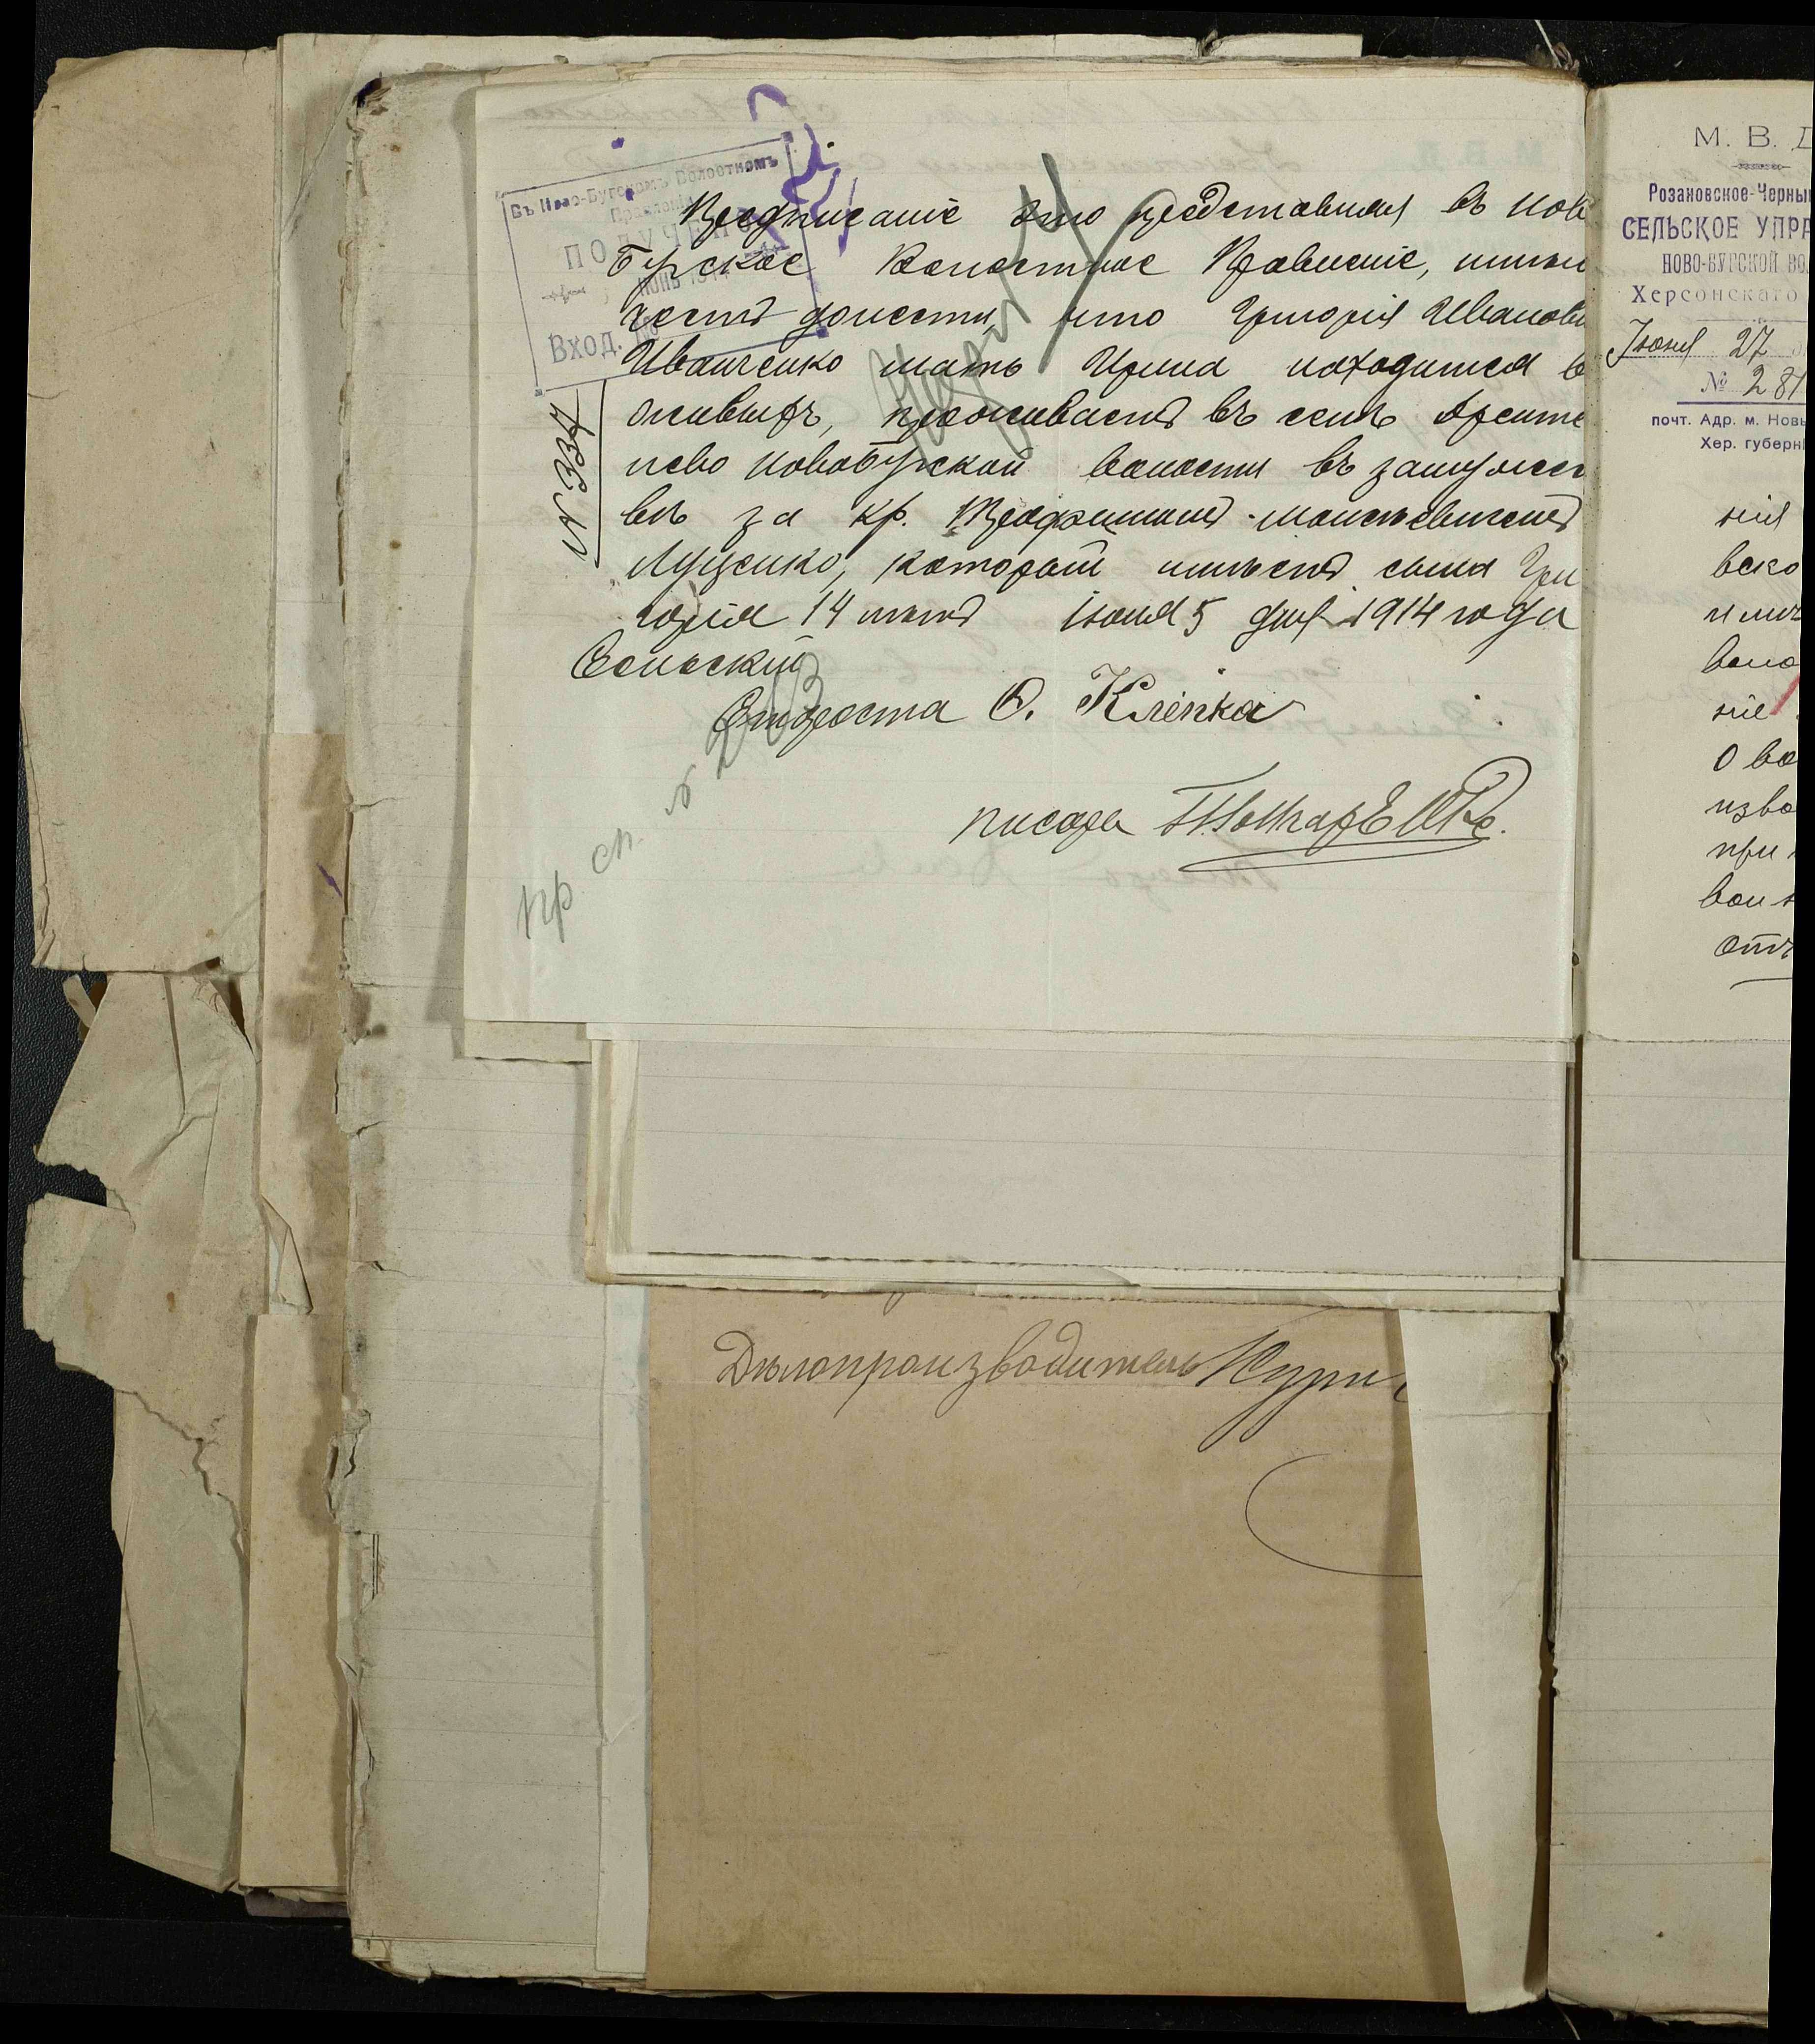 Въ Ново-Бугскомъ Волостномъ
Правленіи
ПОЛУЧЕНО
ІЮНЬ 191
ВХОД. №
Предписаніе это представляя въ Ново
Бугское Волостное Правленіе, имѣю
честь донести, что Григорія Иванови
Иванченко мать Ирина находится в
живыхъ, проживаетъ въ селѣ
нево Новобугской волости въ замужес
вѣ за кр. Трофимомъ Моисѣевичемъ
Луценко, которой имѣетъ сына Гри
горія 14 лѣтъ іюня 5 дня 1914 года
Сельскій
Староста О. Клепка
писарь
№ 337
пр. сп. № 203
Дѣлопроизводитель
М. В. Д
Розановское-Черны
СЕЛЬСКОЕ УПРА
НОВО-БУГСКОЙ ВО
Херсонскаго
Іюня 27
№ 281
почт. Адр. м. Новы
Хер. губерн
нія
вско
и
воло
ніе
О во
изво
при